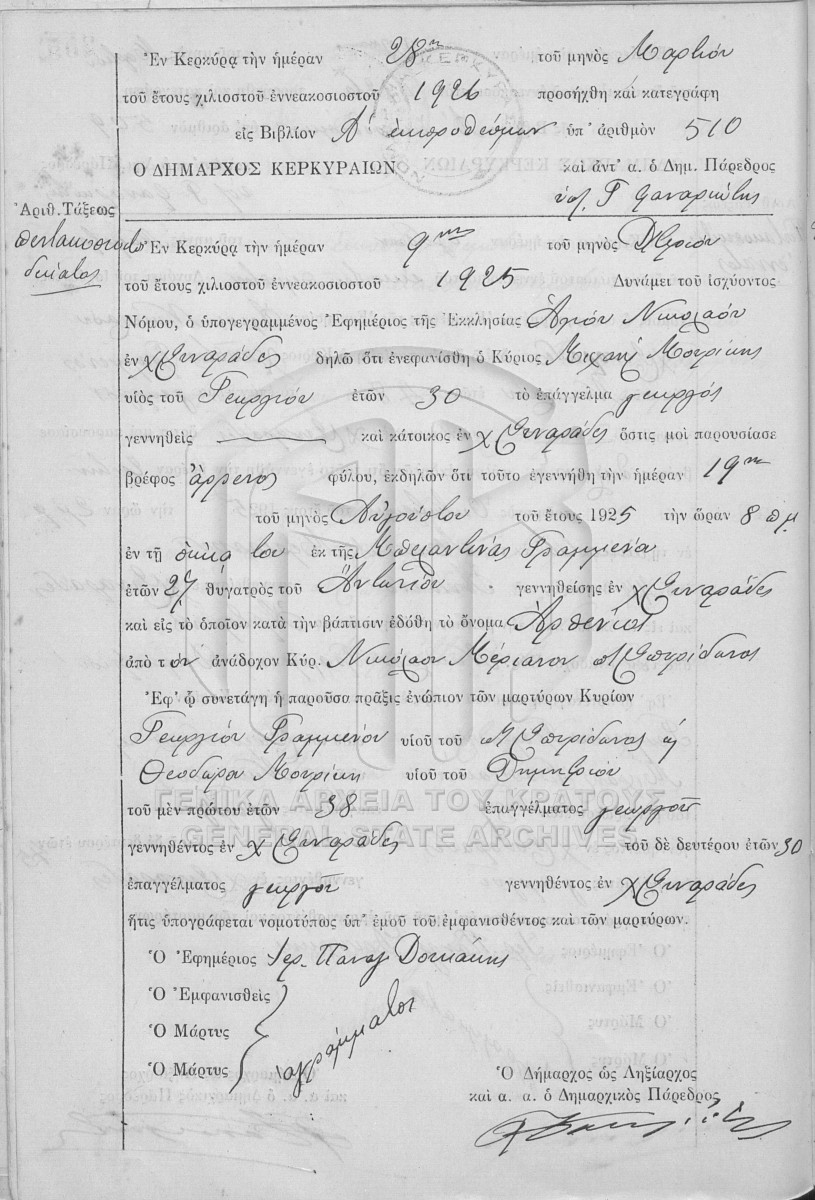 Ἐν Κερκύρᾳ τὴν ἡμέραν 28ην τοῦ μηνὸς Μαρτίου
τοῦ ἔτους χιλιοστοῦ ἐννεακοσιοστοῦ 1926 προσήχθη καὶ κατεγράφη
εἰς Βιβλίον Α' ἐκπροθέσμων ὑπ' ἀριθμὸν 510
Ο ΔΗΜΑΡΧΟΣ ΚΕΡΚΥΡΑΙΩΝ καὶ ἀντ' α. ὁ Δημ. Πάρεδρος
Γ Φαναριώτης
Ἀριθ. Τάξεως
πεντακοσιοστὸς
δέκατος
Ἐν Κερκύρᾳ τὴν ἡμέραν 9ην τοῦ μηνὸς
τοῦ ἔτους χιλιοστοῦ ἐννεακοσιοστοῦ 1925 Δυνάμει τοῦ ἰσχύοντος
Νόμου, ὁ ὑπογεγραμμένος Ἐφημέριος τῆς Ἐκκλησίας Ἁγίου Νικολάου
ἐν χ Συναράδες δηλῶ ὅτι ἐνεφανίσθη ὁ Κύριος Μιχαὴλ Μουρίκης
υἱὸς τοῦ Γεωργίου ἐτῶν 30 τὸ ἐπάγγελμα γεωργὸς
γεννηθεὶς καὶ κάτοικος ἐν χ Συναράδες ὅστις μοὶ παρουσίασε
βρέφος ἄρρενος φύλου, ἐκδηλῶν ὅτι τοῦτο ἐγεννήθη τὴν ἡμέραν 19ην
τοῦ μηνὸς Αὐγούστου τοῦ ἔτους 1925 τὴν ὥραν 8 π.μ.
ἐν τῇ οἰκίᾳ του ἐκ τῆς Γραμμένα
ἐτῶν 27 θυγατρὸς τοῦ Ἀντωνίου γεννηθείσης ἐν χ Συναράδες
καὶ εἰς τὸ ὁποῖον κατὰ τὴν βάπτισιν ἐδόθη τὸ ὄνομα Ἀρσένιος
ἀπὸ τὸν ἀνάδοχον Κύρ. Νικόλαον Μέριανον Σπυρίδωνος
Ἐφ' ᾧ συνετάγη ἡ παροῦσα πρᾶξις ἐνώπιον τῶν μαρτύρων Κυρίων
Γεωργίου Γραμμένου υἱοῦ τοῦ Σπυρίδωνος
Θεοδώρα Μουρίκη υἱοῦ τοῦ Δημητρίου
τοῦ μὲν πρώτου ἐτῶν 38 ἐπαγγέλματος γεωργοῦ
γεννηθέντος ἐν χ Συναράδες τοῦ δὲ δευτέρου ἐτῶν 30
ἐπαγγέλματος γεωργοῦ γεννηθέντος ἐν χ Συναράδες
ἥτις ὑπογράφεται νομοτύπως ὑπ' ἐμοῦ τοῦ ἐμφανισθέντος καὶ τῶν μαρτύρων.
Ὁ Ἐφημέριος Ἱερ. Παναγ
Ὁ Ἐμφανισθεὶς
Ὁ Μάρτυς
Ὁ Μάρτυς
ἀγράμματοι
Ὁ Δήμαρχος ὡς Ληξίαρχος
καὶ α. α. ὁ Δημαρχικὸς Πάρεδρος
ΓΕΝΙΚΑ ΑΡΧΕΙΑ ΤΟΥ ΚΡΑΤΟΥΣ
GENERAL STATE ARCHIVES